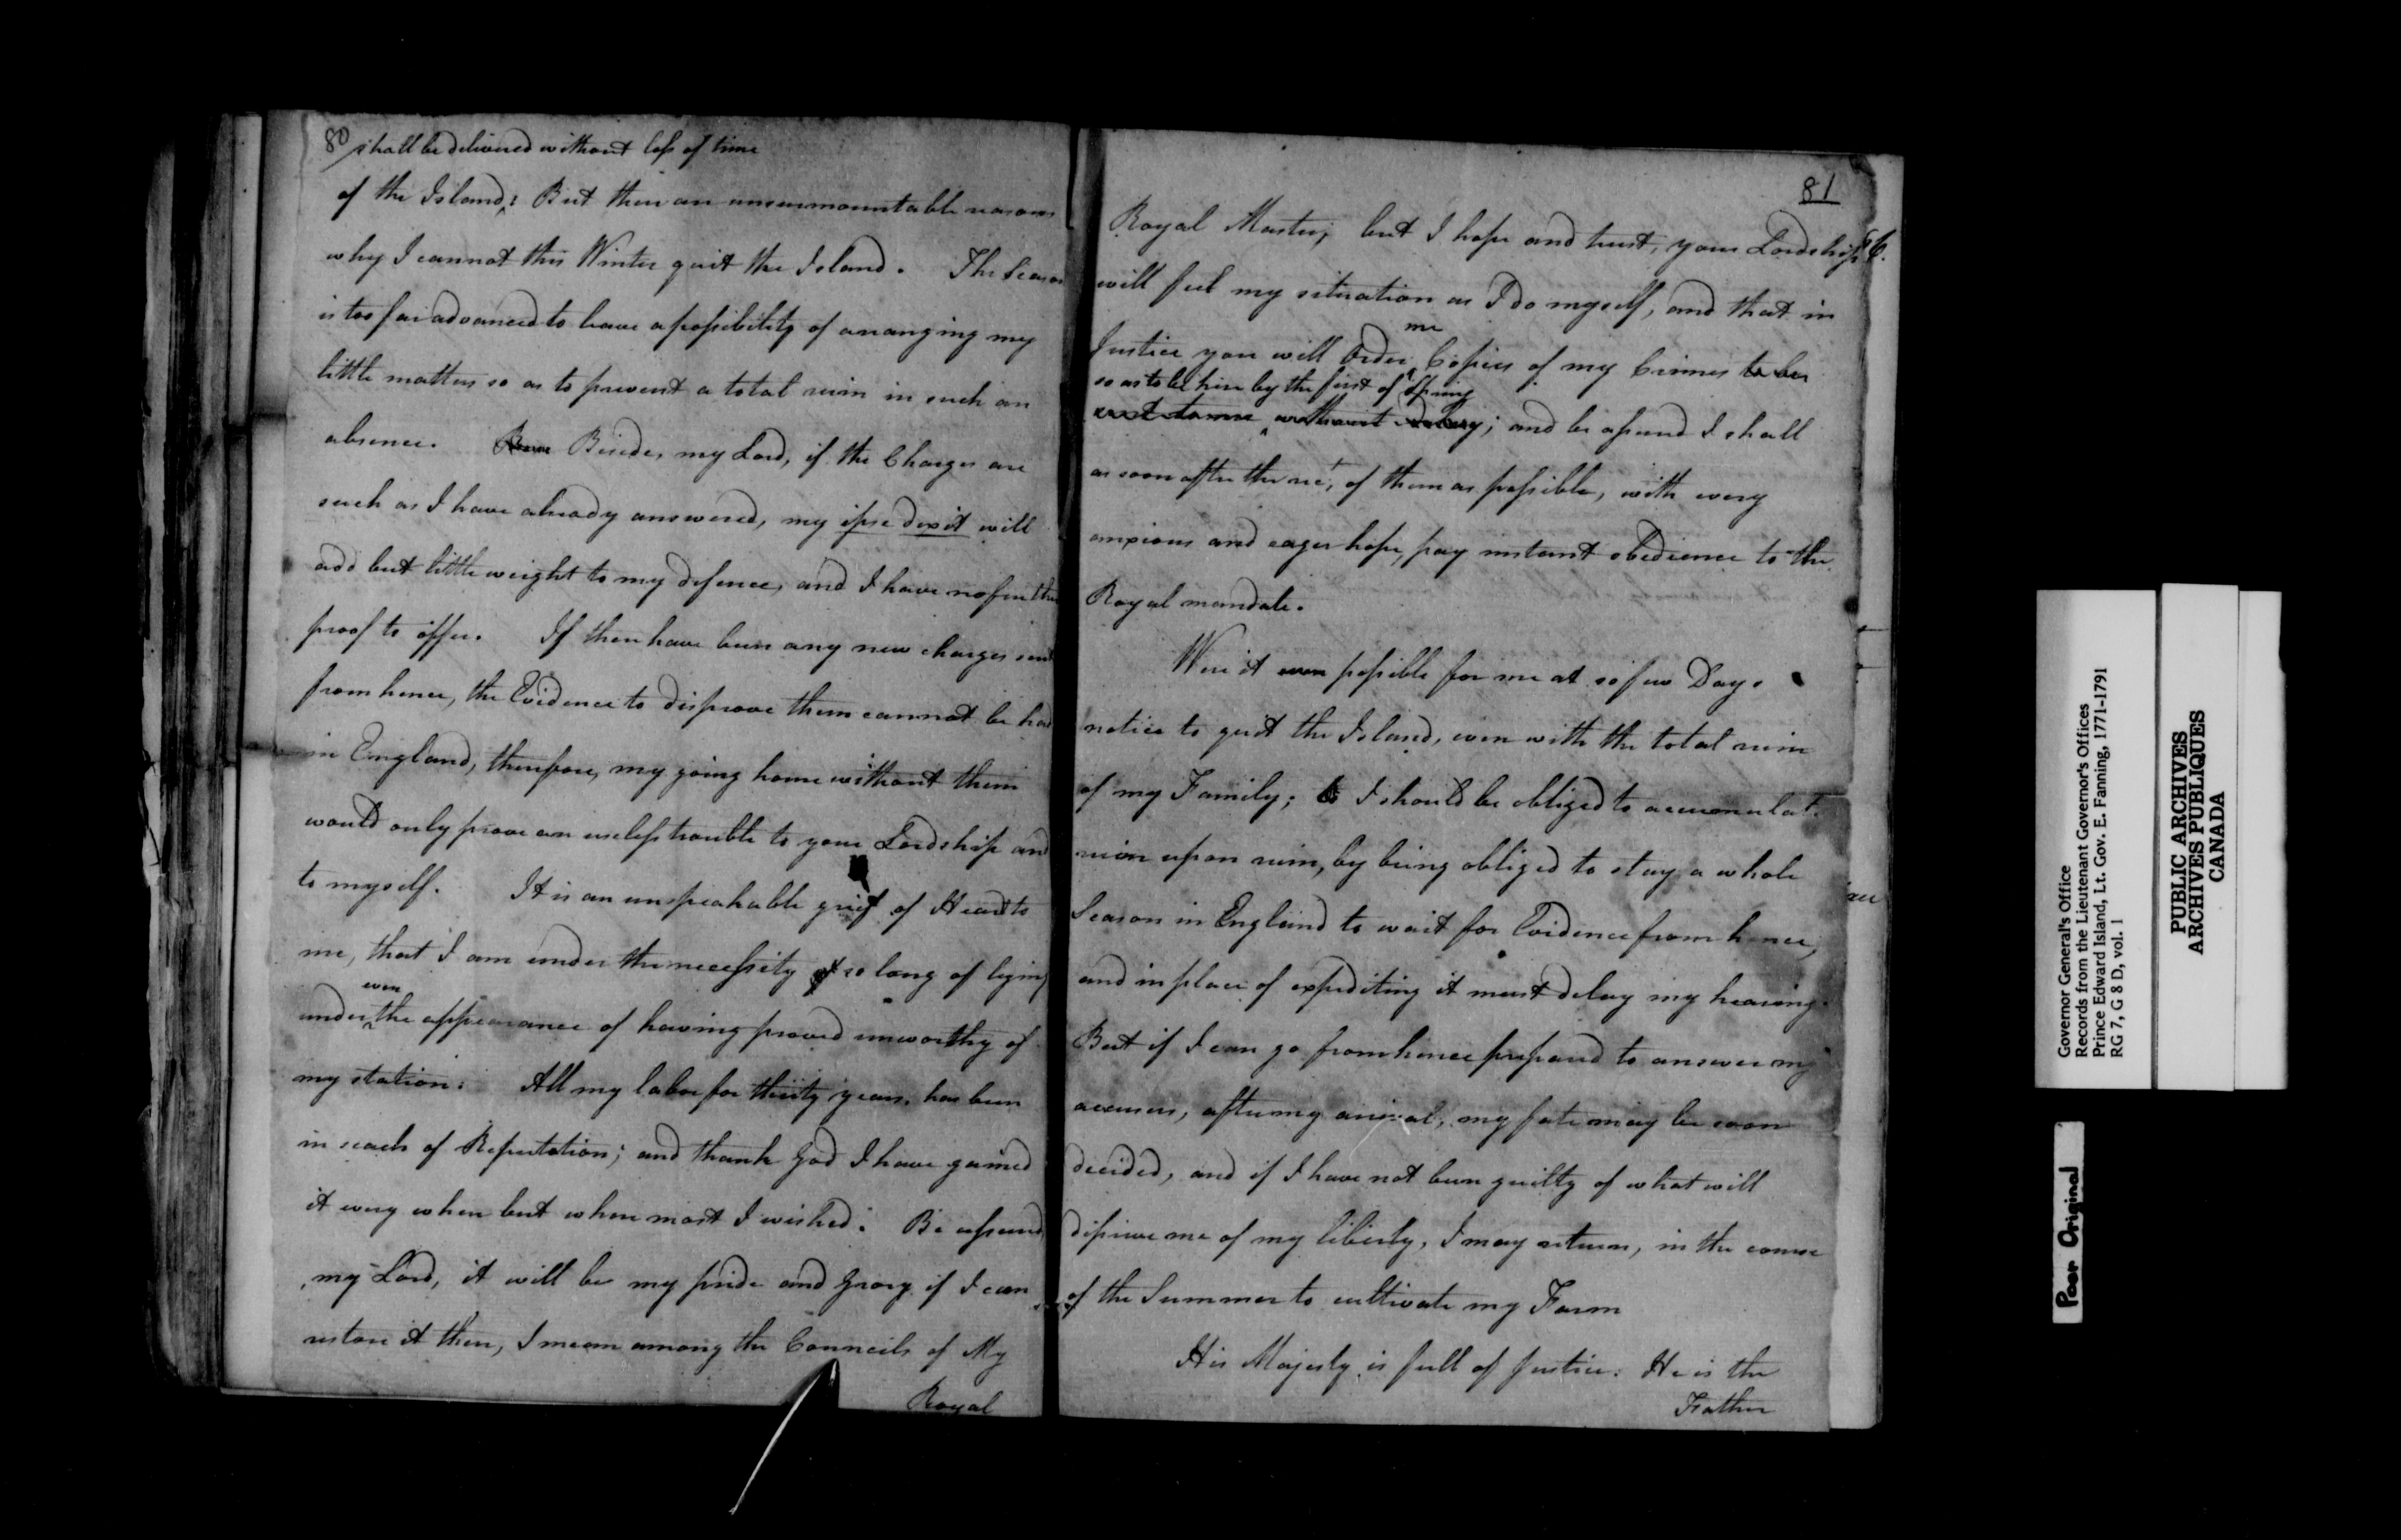 80
shall be delivered without loss of time
of the Island: But there are unsurmountable reasons
why I cannot this Winter quit the Island. The Season
is too far advanced to leave a possibility of arranging my
little matters so as to prevent a total ruin in such an
absence. Besides, my Lord, if the Charges are
such as I have already answered, my ipse dixit will
add but little weight to my defence, and I have no further
proof to offer. If there have been any new charges sent
from hence, the Evidence to disprove them cannot be had
in England, therefore, my going home without them
would only prove an useless trouble to your Lordship and
to myself. It is an unspeakable grief of Heart to
me, that I am under the necessity so long of lying
even
under the appearance of having proved unworthy of
my station: All my labor for thirty years, has been
in seach of Reputation; and thank God I have gained
it every where but where most I wished. Be assured
my Lord, it will be my pride and Glory if I can
restore it there, I mean among the Councils of My
Royal
81
Royal Master; but I hope and trust, your Lordship
will feel my situation as I do myself, and that in
me
Justice you will Order Copies of my Crimes to be
so as to be here by the first of Spring
without delay; and be assured I shall
as soon after the rect. of them as possible, with every
anxious and eager hope, pay instant obedience to the
Royal mandate.
Were it even possible for me at so few Days
notice to quit the Island, even with the total ruin
of my Family; I should be obliged to accumulate
ruin upon ruin, by being obliged to stay a whole
Season in England to wait for Evidence from hence,
and in place of expediting it must delay my hearing.
But if I can go from hence prepared to answer my
accusers, after my arival, my fate may be soon
decided, and if I have not been guilty of what will
deprive me of my liberty, I may return, in the course
of the Summer to cultivate my Farm
His Majesty is full of Justice. He is the
Father
Governor General's Office
Records from the Lieutenant Governor's Offices
Prince Edward Island, Lt. Gov. E. Fanning, 1771-1791
RG 7, G 8 D, vol. 1
PUBLIC ARCHIVES
ARCHIVES PUBLIQUES
CANADA
Poor Original